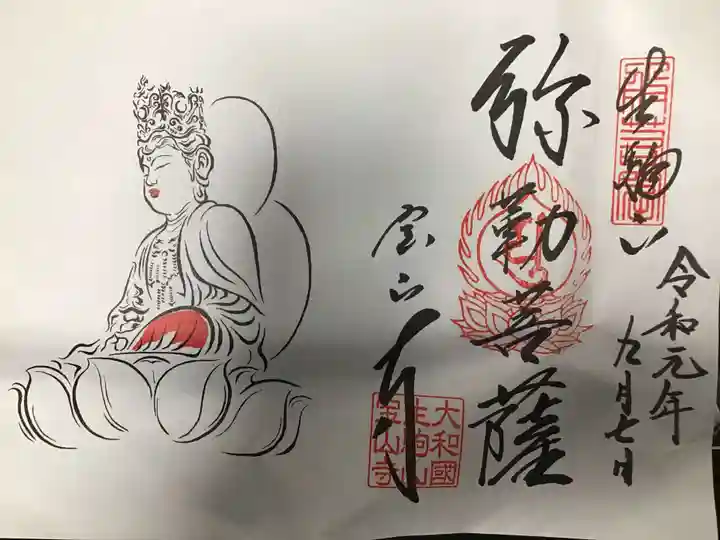 生駒山
令和元年
九月七日
弥勒菩薩
宝山寺
大和國
生駒山
宝山寺